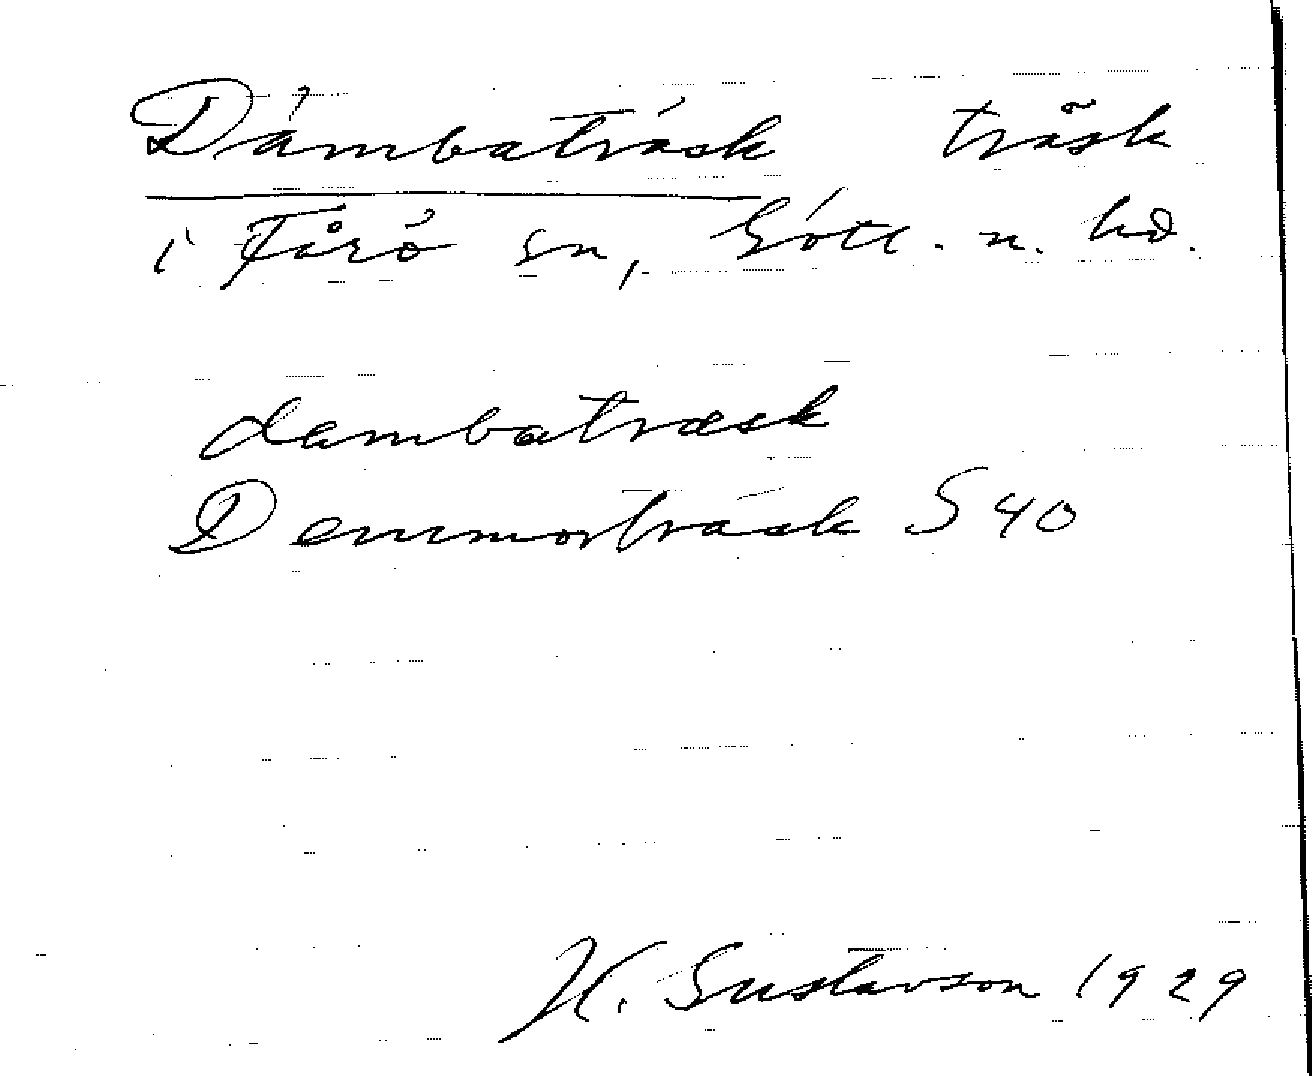 Dämbaträsk träsk
i Fårö sn, Gotl. n. hd.
dambatræsk
Demmorträsk S 40
H. Gustavson 1929